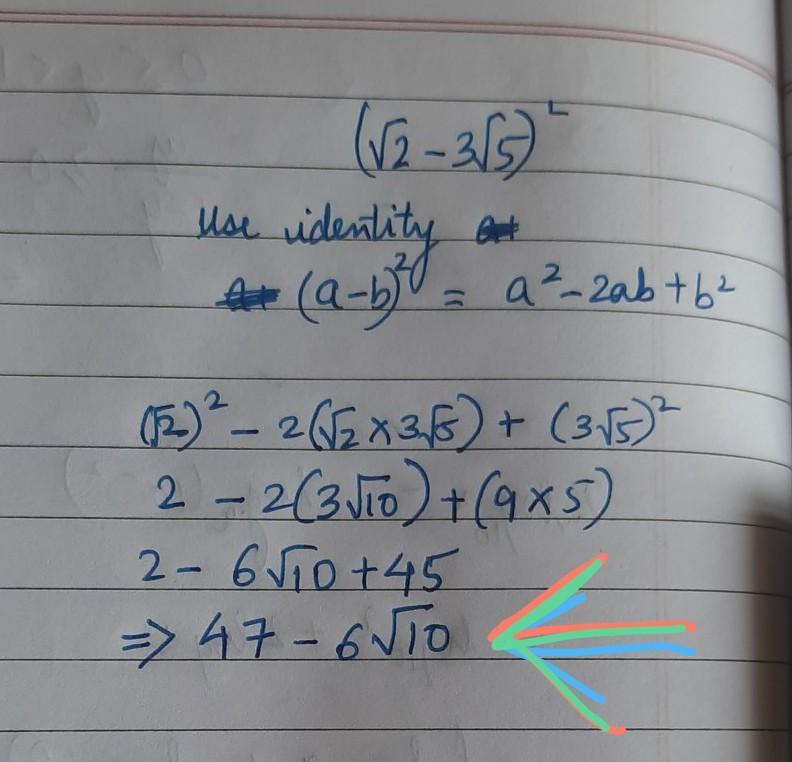 (√2 - 3√5)²
Use identity
(a-b)² = a² - 2ab + b²
(√2)² - 2(√2 × 3√5) + (3√5)²
2 - 2(3√10) + (9 × 5)
2 - 6√10 + 45
⇒ 47 - 6√10